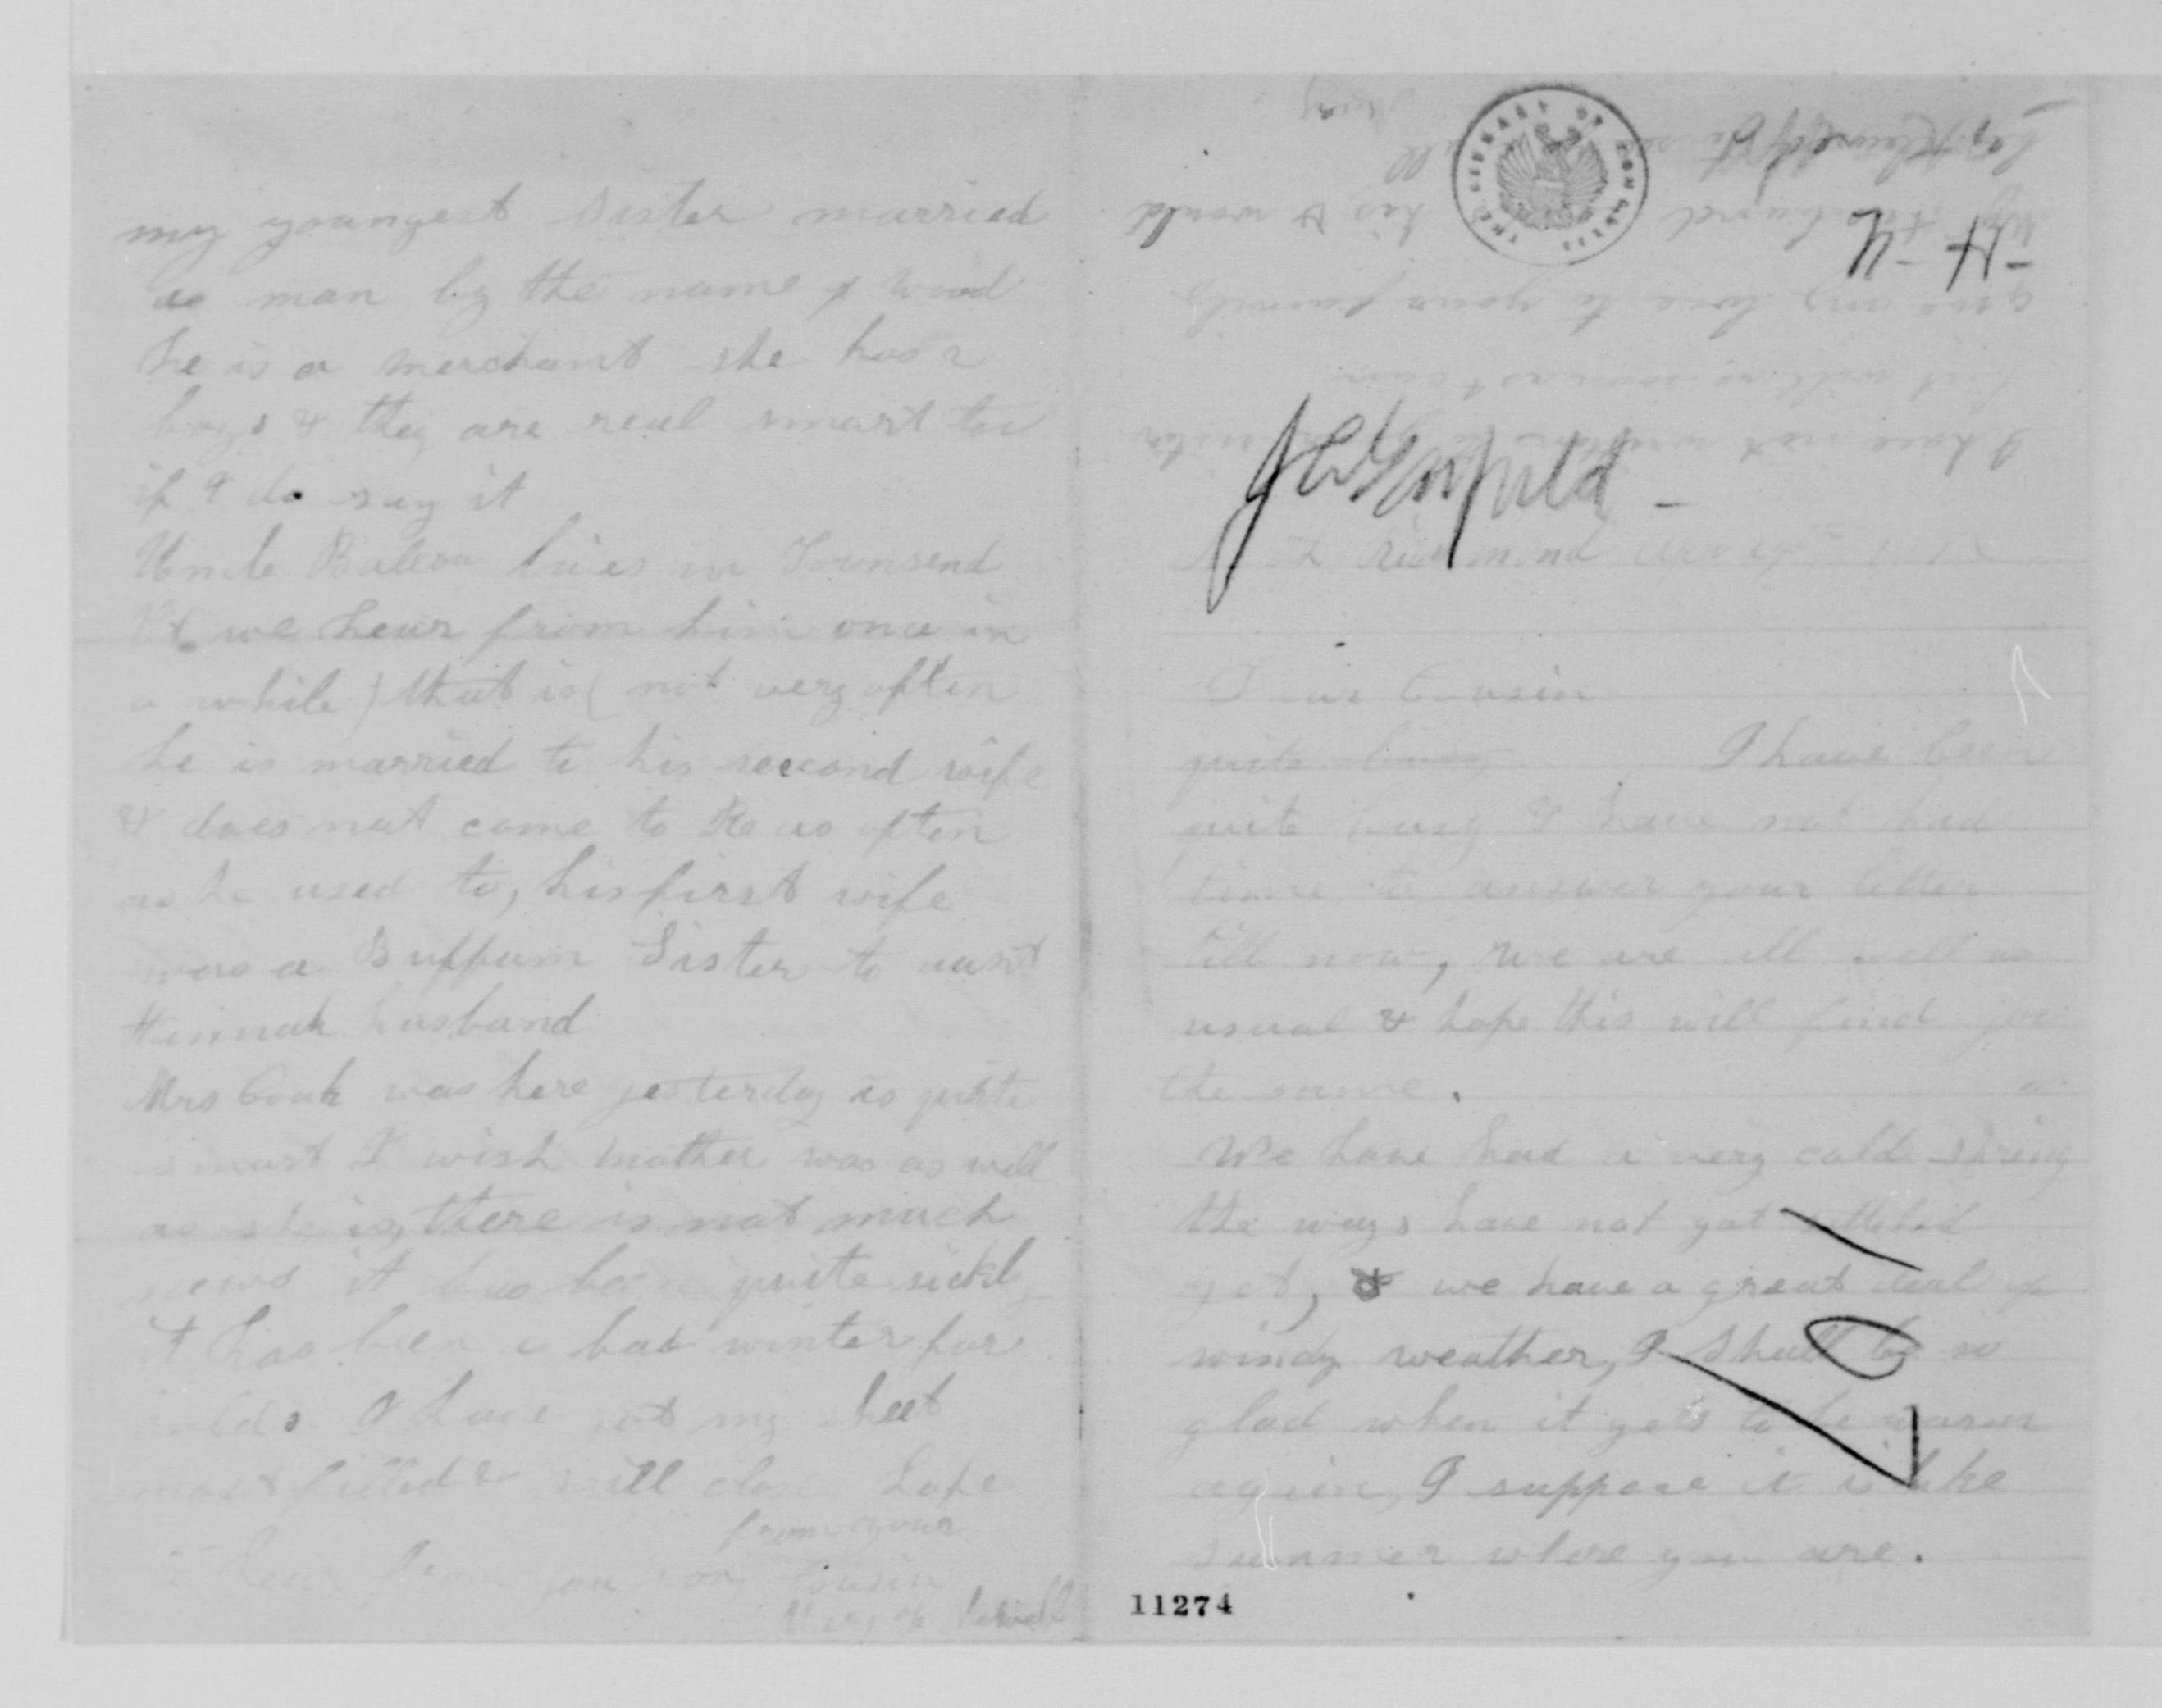 my youngest sister married
a man by the name of Wood
he is a merchant she has 2
boys & they are real smart too
if I do say it
Uncle lives in Townsend
Vt. we hear from him once in
a while ) that is ( not very often
he is married to his seccond wife
& does not come to see us often
as he used to, his first wife
was a Buffum Sister to aunt
Hannah husband
Mrs Cook was here yesterday is quite
smart I wish mother was as well
as she is, there is not much
news it has been quite sickly
it has been a bad winter for
colds. I have got my sheet
most filled & will close hope
from your
to hear from you soon Cousin
Mary
J A Garfield -
Richmond
Dear Cousin
quite busy I have been
quite busy & have not had
time to answer your letter
till now, we are all well as
usual & hope this will find you
the same.
We have had a very cold spring
the ways have not got settled
yet, & we have a great deal of
windy weather, I shall be so
glad when it gets to be warm
again, I suppose it is like
summer where you are.
I have not written to
but will as soon as I can
give my love to your family
My husband his & would
be pleased to all
Mary
THE LIBRARY OF CONGRESS
11274